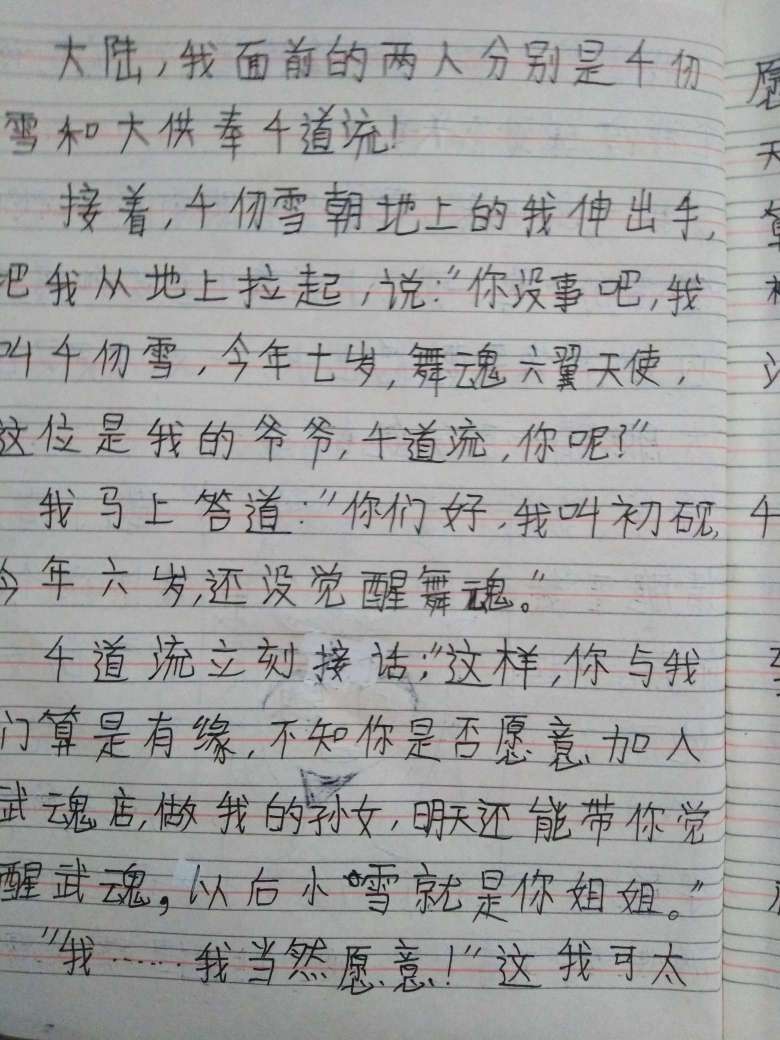 大陆,我面前的两人分别是千仞
雪和大供奉千道流!
接着,千仞雪朝地上的我伸出手,
把我从地上拉起,说:“你没事吧,我
叫千仞雪,今年七岁,舞魂六翼天使,
这位是我的爷爷,千道流,你呢?”
我马上答道:“你们好,我叫初砚,
今年六岁,还没觉醒舞魂。”
千道流立刻接话:“这样,你与我
们算是有缘,不知你是否愿意加入
武魂店,做我的孙女,明天还能带你觉
醒武魂,以后小雪就是你姐姐。”
“我……我当然愿意!”这我可太
愿
天
千